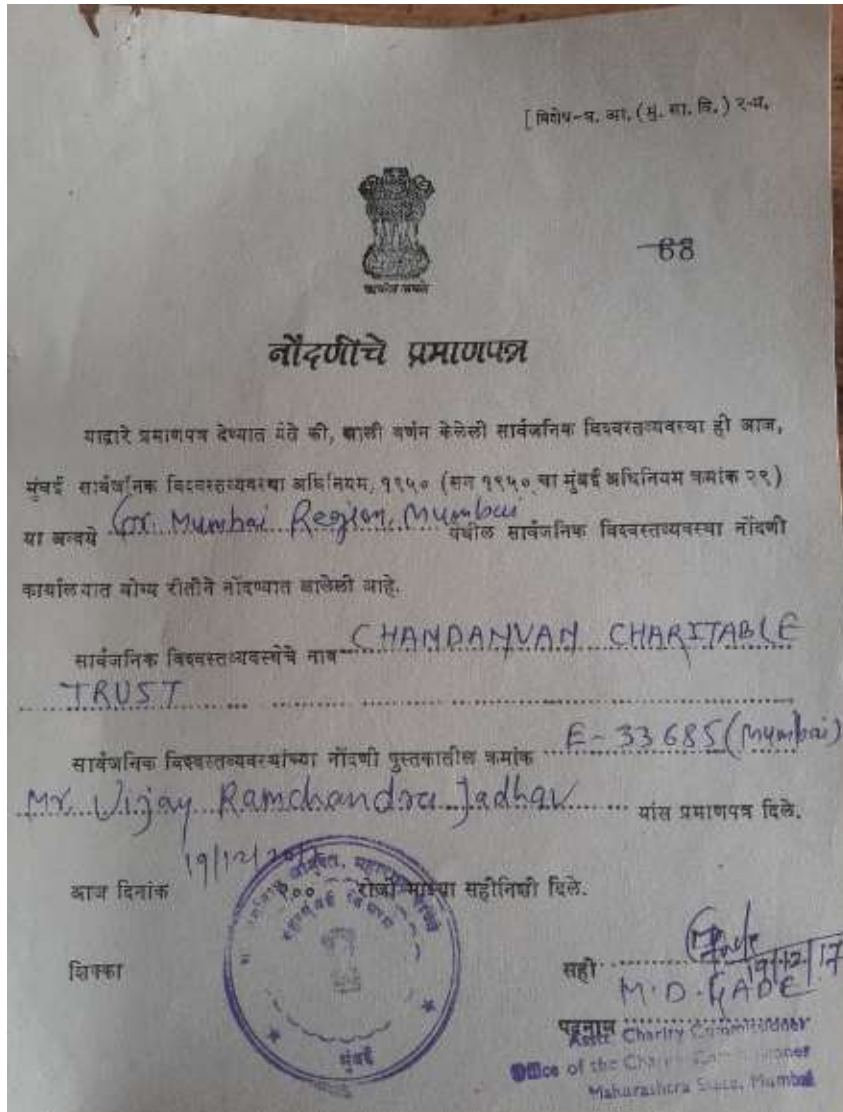 [ विशेष-ध. आ. (मु. सा. वि.) २-म.
68
सत्यमेव जयते
नोंदणीचे प्रमाणपत्र
याद्वारे प्रमाणपत्र देण्यात येते की, खाली वर्णन केलेली सार्वजनिक विश्वस्तव्यवस्था ही आज,
मुंबई सार्वजनिक विश्वस्तव्यवस्था अधिनियम, १९५० (सन १९५० चा मुंबई अधिनियम क्रमांक २९)
या अन्वये Gr. Mumbai Region, Mumbai येथील सार्वजनिक विश्वस्तव्यवस्था नोंदणी
कार्यालयात योग्य रीतीने नोंदण्यात आलेली आहे.
सार्वजनिक विश्वस्तव्यवस्थेचे नाव CHANDANVAN CHARITABLE
TRUST
सार्वजनिक विश्वस्तव्यवस्थांच्या नोंदणी पुस्तकातील क्रमांक E-33685 (Mumbai)
Mr. Vijay Ramchandra Jadhav यांस प्रमाणपत्र दिले.
आज दिनांक 19/12/2017 २०० रोजी माझ्या सहीनिशी दिले.
शिक्का
मुंबई
सही 19/12/17
M.D. GADE
पदनाम
Asstt. Charity Commissioner
Office of the Charity Commissioner
Maharashtra State, Mumbai